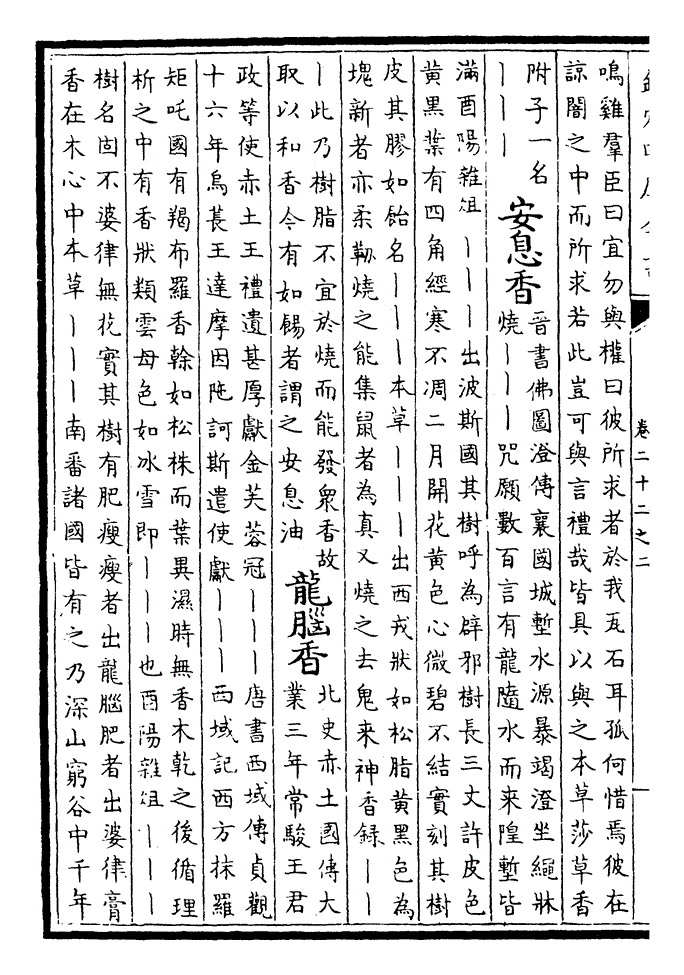 欽定四庫全書
卷二十二之二
鳴雞羣臣曰宜勿與權曰彼所求者於我瓦石耳孤何惜焉彼在
諒闇之中而所求若此豈可與言禮哉皆具以與之本草莎草香
附子一名
丨丨丨
安息香
晉書佛圖澄傳襄國城塹水源暴竭澄坐繩牀
燒丨丨丨咒願數百言有龍隨水而来隍塹皆
滿酉陽雜俎丨丨丨出波斯國其樹呼為辟邪樹長三丈許皮色
黃黑葉有四角經寒不凋二月開花黃色心微碧不結實刻其樹
皮其膠如飴名丨丨丨本草丨丨丨出西戎狀如松脂黃黑色為
塊新者亦柔韌燒之能集鼠者為真又燒之去鬼来神香録丨丨
丨此乃樹脂不宜於燒而能發衆香故
取以和香今有如餳者謂之安息油
龍腦香
北史赤土國傳大
業三年常駿王君
政等使赤土王禮遺甚厚獻金芙蓉冠丨丨丨唐書西域傳貞觀
十六年烏萇王達摩因陁訶斯遣使獻丨丨丨西域記西方抹羅
矩吒國有羯布羅香榦如松株而葉異濕時無香木乾之後循理
析之中有香狀類雲母色如冰雪即丨丨丨也酉陽雜俎丨丨丨
樹名固不婆律無花實其樹有肥瘦瘦者出龍腦肥者出婆律膏
香在木心中本草丨丨丨南番諸國皆有之乃深山窮谷中千年